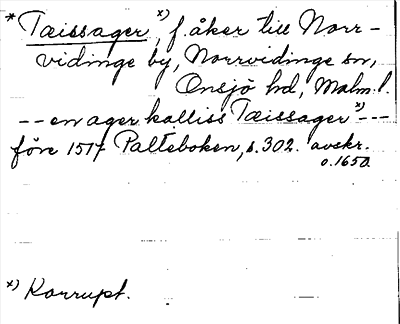 * Tæissager x), f. åker till Norr-
vidinge by, Norrvidinge sn,
Onsjö hd, Malm. l.
-- en ager kalliss Tæissager x) ---
före 1517 Palteboken, s. 302. avskr.
o. 1650.
x) Korrupt.